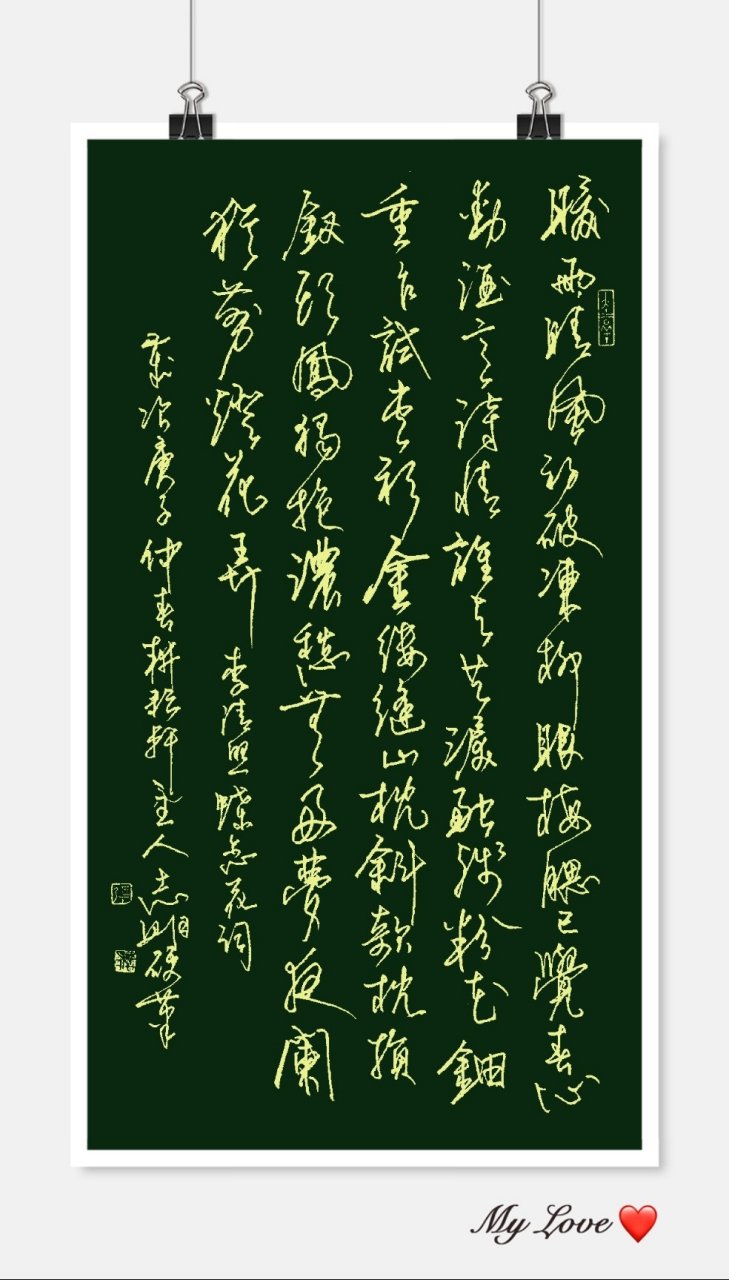 暖雨晴風初破凍柳眼梅腮已覺春心
動酒意詩情誰与共淚融残粉花鈿
重乍試夹衫金縷縫山枕斜欹枕損
釵頭鳳獨抱濃愁無好夢夜闌
猶剪燈花弄 李清照蝶恋花詞
歲次庚子仲春耕耘軒主人志明硬筆
My Love